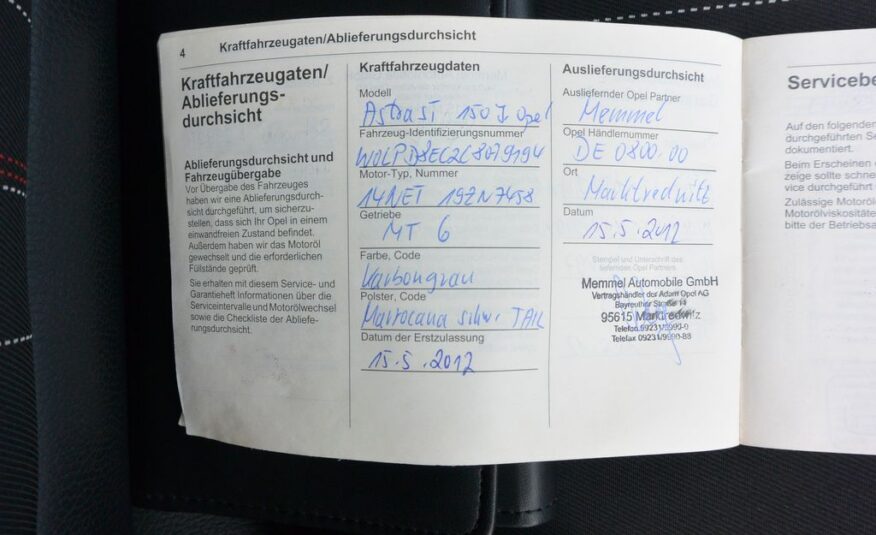 4 Kraftfahrzeugaten/Ablieferungsdurchsicht
Kraftfahrzeugaten/
Ablieferungs-
durchsicht
Ablieferungsdurchsicht und
Fahrzeugübergabe
Vor Übergabe des Fahrzeuges
haben wir eine Ablieferungsdurch-
sicht durchgeführt, um sicherzu-
stellen, dass sich Ihr Opel in einem
einwandfreien Zustand befindet.
Außerdem haben wir das Motoröl
gewechselt und die erforderlichen
Füllstände geprüft.
Sie erhalten mit diesem Service- und
Garantieheft Informationen über die
Serviceintervalle und Motorölwechsel
sowie die Checkliste der Abliefe-
rungsdurchsicht.
Kraftfahrzeugdaten
Modell
Astra ST 150 J Opel
Fahrzeug-Identifizierungsnummer
W0LPD8EC2C8079194
Motor-Typ, Nummer
14NET 19ZN7458
Getriebe
MT 6
Farbe, Code
Karbongrau
Polster, Code
Marrocana schw. TAIL
Datum der Erstzulassung
15.5.2012
Auslieferungsdurchsicht
Ausliefernder Opel Partner
Memmel
Opel Händlernummer
DE 0800.00
Ort
Marktredwitz
Datum
15.5.2012
Stempel und Unterschrift des
liefernden Opel Partners
Memmel Automobile GmbH
Vertragshändler der Adam Opel AG
Bayreuther Straße 14
95615 Marktredwitz
Telefon 09231/9990-0
Telefax 09231/9990-88
Servicebe
Auf den folgenden
durchgeführten Se
dokumentiert.
Beim Erscheinen
zeige sollte schne
vice durchgeführt
Zulässige Motoröl
Motorölviskosität
bitte der Betriebsa